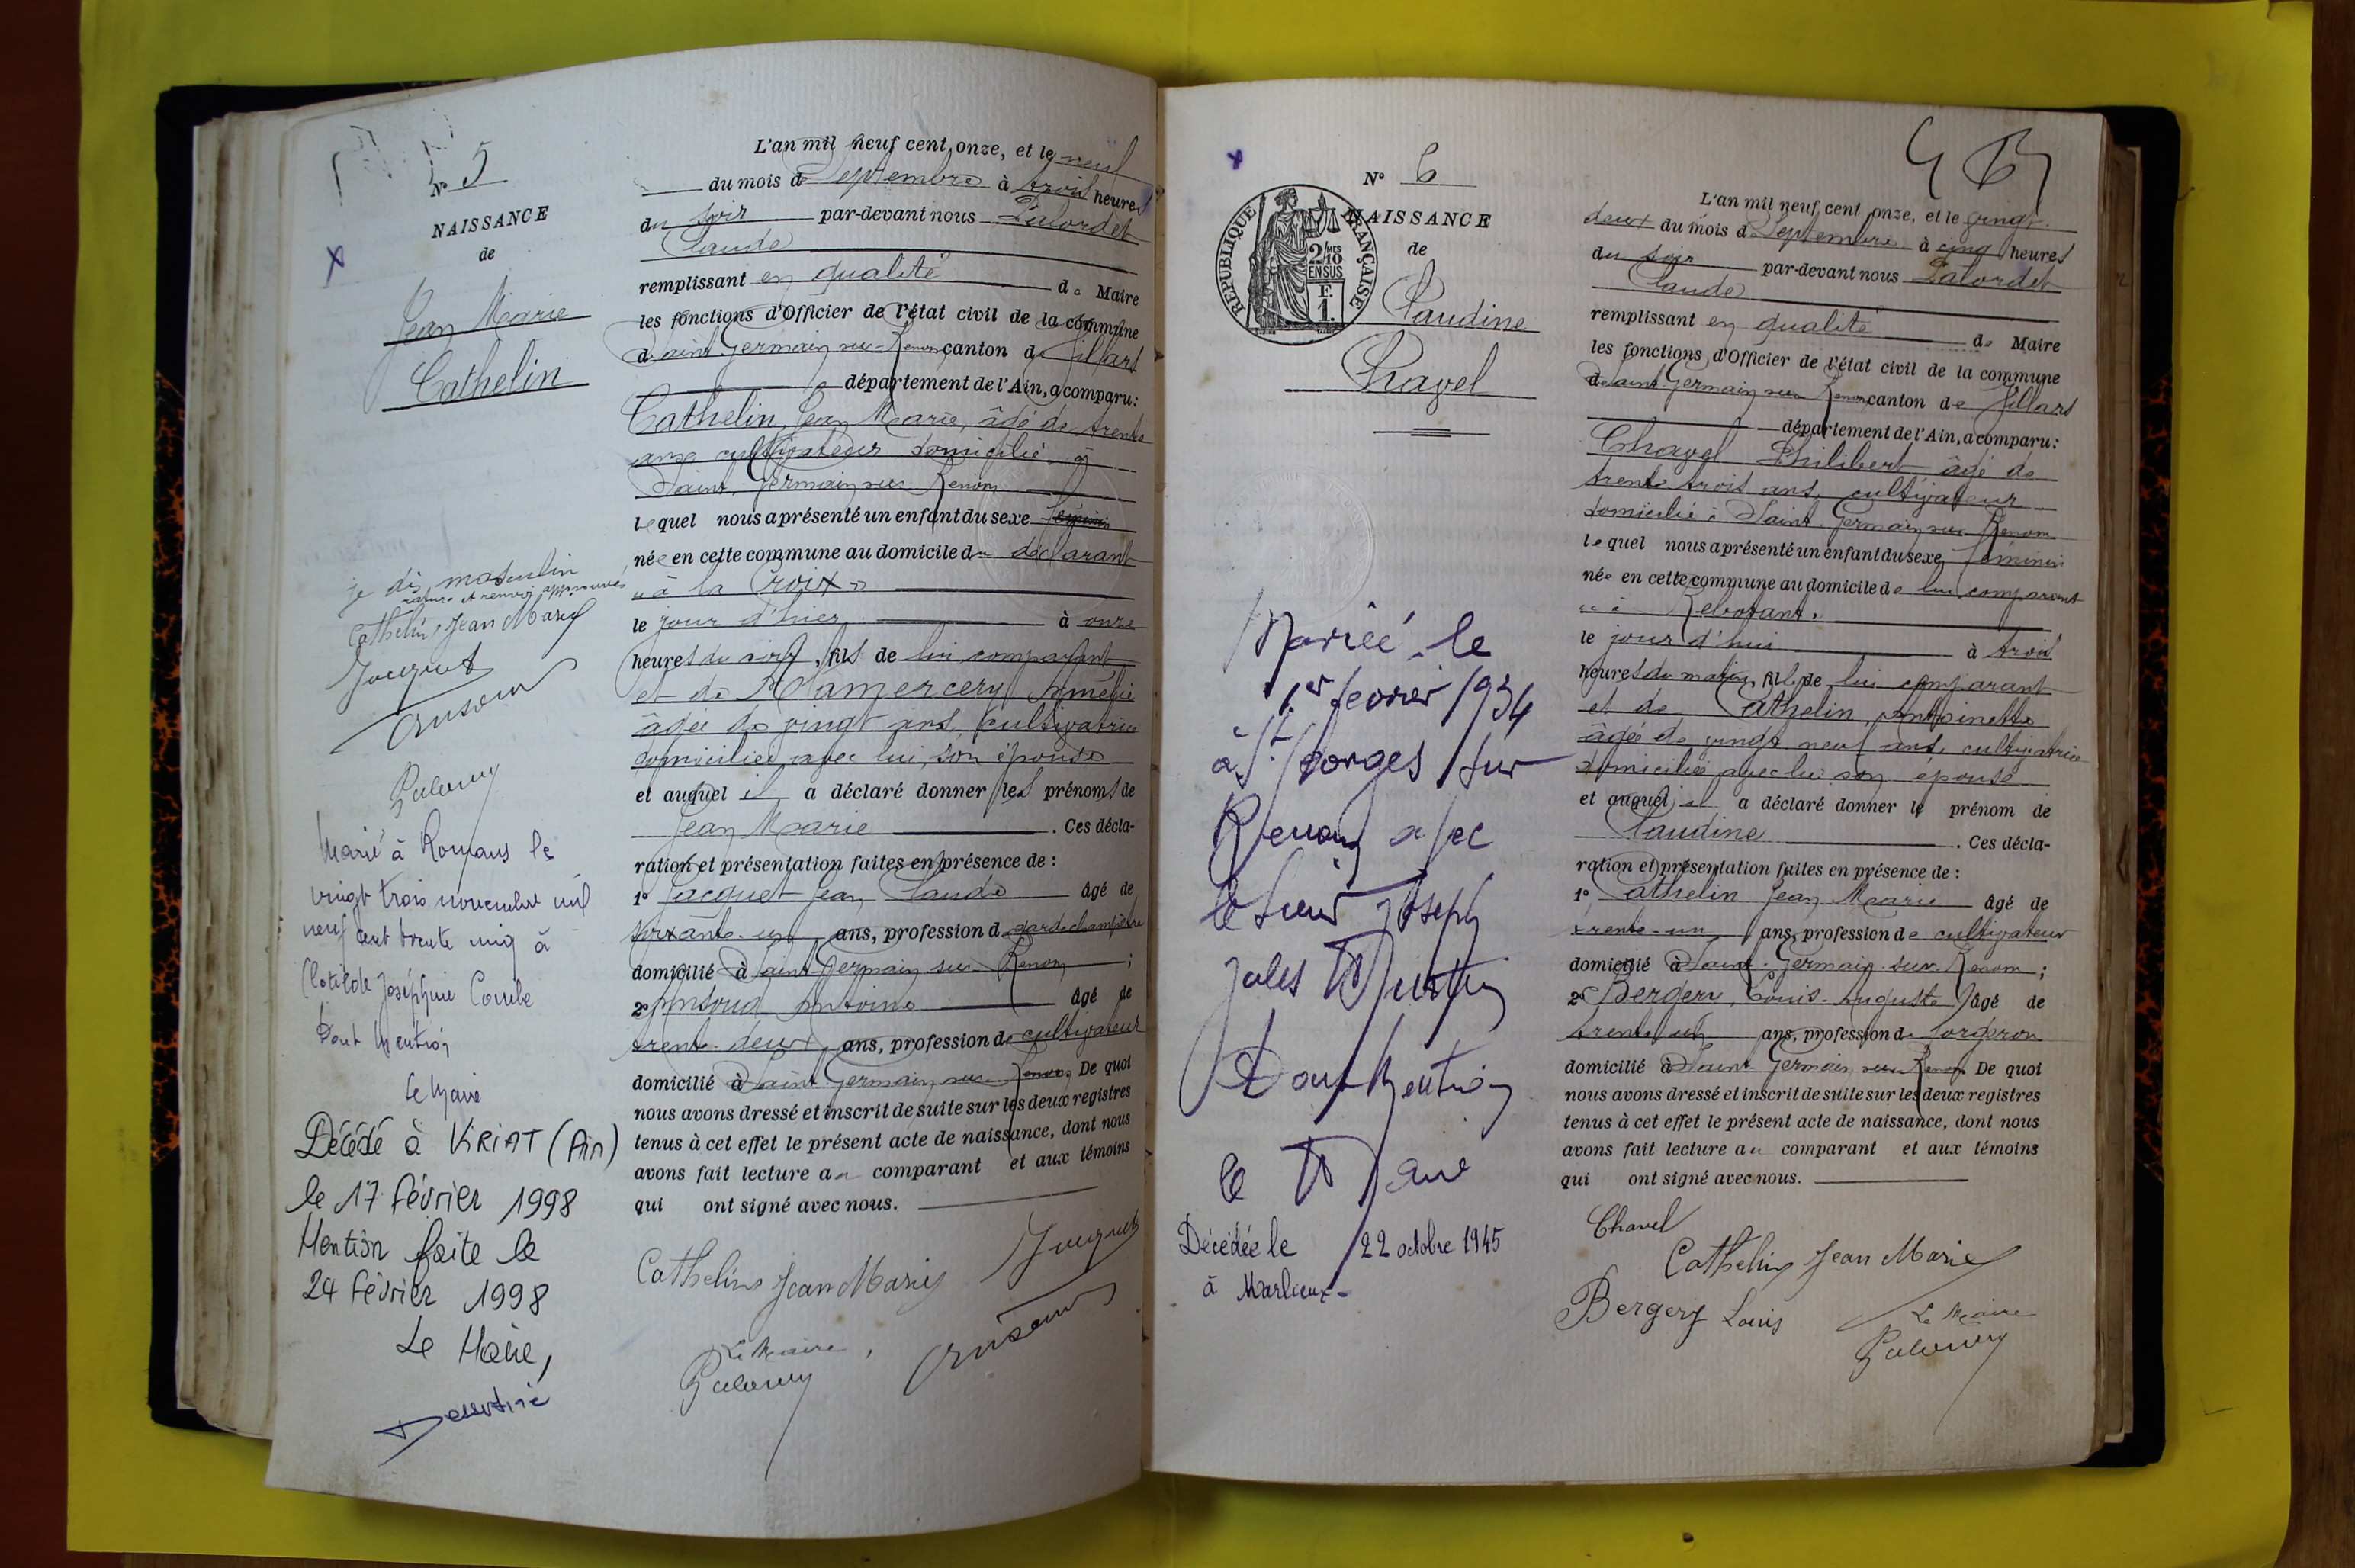 N° 5
NAISSANCE
de
Jean Marie
Cathelin
je dis masculin
rature et renvoi approuvés
Cathelin Jean Marie
Jacquet
Marié à Romans le
vingt trois novembre mil
neuf cent trente cinq à
Clotilde Joséphine Combe
Dont Mention
Le Maire
Décédé à VIRIAT (Ain)
le 17 février 1998
Mention faite le
24 février 1998
Le Maire,
L'an mil neuf cent onze, et le neuf
du mois de Septembre à trois heures
du soir par-devant nous
Claude
remplissant en qualité de Maire
les fonctions d'Officier de l'état civil de la commune
de Saint Germain sur Renon canton de Villars
département de l'Ain, a comparu:
Cathelin, Jean Marie, âgé de trente
ans cultivateur domicilié à
Saint Germain sur Renon
lequel nous a présenté un enfant du sexe féminin
née en cette commune au domicile du déclarant
"à la Croix"
le jour d'hier à onze
heures du soir, fils de lui comparant
et de
âgée de vingt ans, cultivatrice
domiciliée avec lui, son épouse
et auquel il a déclaré donner les prénoms de
Jean Marie. Ces décla-
ration et présentation faites en présence de :
1° Jacquet Jean Claude âgé de
soixante-un ans, profession de garde champêtre
domicilié à Saint Germain sur Renon ;
2° Ansoud Antoine âgé de
trente-deux ans, profession de cultivateur
domicilié à Saint Germain sur Renon De quoi
nous avons dressé et inscrit de suite sur les deux registres
tenus à cet effet le présent acte de naissance, dont nous
avons fait lecture au comparant et aux témoins
qui ont signé avec nous.
Cathelin Jean Marie Jacquet
Le Maire,
N° 6
NAISSANCE
de
Claudine
Chavel
REPUBLIQUE FRANÇAISE
2/10 MES
EN SUS
F.
1.
Mariée le
1er février 1934
à St Georges sur
Renon avec
le sieur Joseph
Jules
Dont Mention
le Maire
Décédée le 22 octobre 1945
à Marlieux-
L'an mil neuf cent onze, et le vingt-
deux du mois de Septembre à cinq heures
du soir par-devant nous
Claude
remplissant en qualité de Maire
les fonctions d'Officier de l'état civil de la commune
de Saint Germain sur Renon canton de Villars
département de l'Ain, a comparu:
Chavel Philibert âgé de
trente trois ans, cultivateur
domicilié à Saint Germain sur Renon
lequel nous a présenté un enfant du sexe féminin
née en cette commune au domicile de lui comparant
le jour d'hui à trois
heures du matin, fille de lui comparant
et de Cathelin, Antoinette
âgée de vingt neuf ans, cultivatrice
domiciliée avec lui son épouse
et auquel il a déclaré donner le prénom de
Claudine. Ces décla-
ration et présentation faites en présence de :
1° Cathelin Jean Marie âgé de
trente-un ans, profession de cultivateur
domicilié à Saint Germain sur Renon ;
2° Bergery, Louis Auguste âgé de
trente un ans, profession de forgeron
domicilié à Saint Germain sur Renon De quoi
nous avons dressé et inscrit de suite sur les deux registres
tenus à cet effet le présent acte de naissance, dont nous
avons fait lecture au comparant et aux témoins
qui ont signé avec nous.
Chavel
Cathelin Jean Marie
Bergery Louis
Le Maire